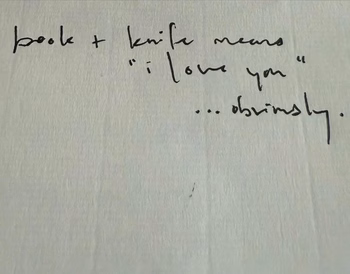 book + knife means
"i love you"
...obviously.